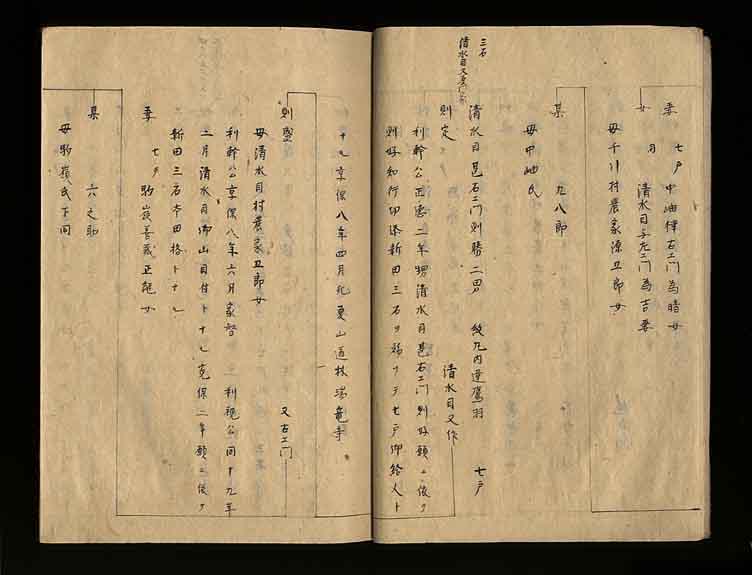 妻 七戸中〓〓右エ門為晴女
女 〓 清水目与左エ門為吉妻
母千引村農家源五郎女
某 九八郎
母中〓氏
三石
清水目又
清水目甚右エ門則勝二男 紋丸内違鷹羽 七戸
則定 清水目又作
利幹公正徳二年甥清水目甚右エ門則好願ニ依リ
則好知行所添新田三石ヲ賜リテ七戸御給人ト
ナル享保八年四月死更山道秋瑞竜寺
則堅 又右エ門
母清水目村農家五郎女
利幹公享保八年六月家督 利視公同十九年
二月清水目御山目付トナル元保二年願ニ依リ
新田三石本田格トナル
妻 七戸駒嶺善蔵正〓女
某 六之助
母駒嶺氏下同